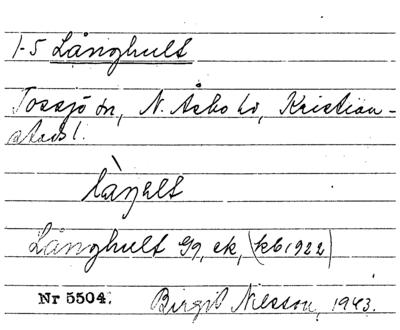 1-5 Långhult
Tossjö sn, N. Åsbo hd, Kristian-
stads l.
làŋelt
Långhult Gg, ek, (kb 1922)
Nr 5504. Birgit Nilsson, 1943.